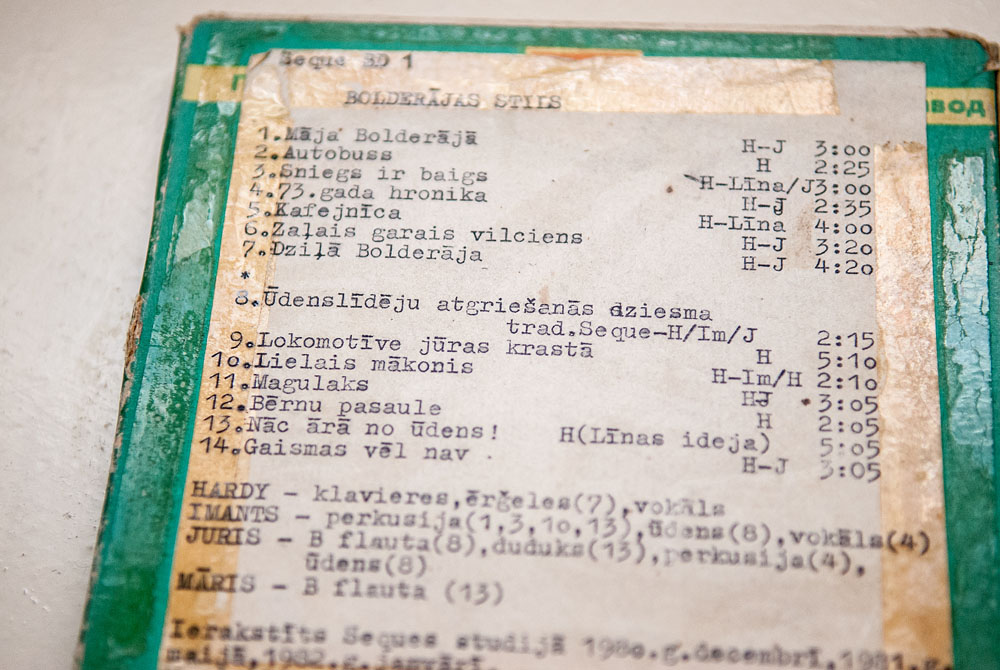 Seque SD 1
BOLDERĀJAS STILS
1.Māja Bolderājā H-J 3:00
2.Autobuss H 2:25
3.Sniegs ir baigs H-Līna/J3:00
4.73.gada hronika H-J 2:35
5.Kafejnīca H-Līna 4:00
6.Zaļais garais vilciens H-J 3:20
7.Dziļā Bolderāja H-J 4:20
*
8.Ūdenslīdēju atgriešanās dziesma
trad.Seque-H/Im/J 2:15
9.Lokomotīve jūras krastā H 5:10
10.Lielais mākonis H-Im/H 2:10
11.Magulaks HJ 3:05
12.Bērnu pasaule H 2:05
13.Nāc ārā no ūdens! H(Līnas ideja) 5:05
14.Gaismas vēl nav H-J 3:05
HARDY - klavieres,ērģeles(7),vokāls
IMANTS - perkusija(1,3,10,13),ūdens(8),vokāls(4)
JURIS - B flauta(8),duduks(13),perkusija(4),
ūdens(8)
MĀRIS - B flauta (13)
Ierakstīts Seques studijā 1980.g.decembrī,1981.g.
maijā,1982.g.janvārī.